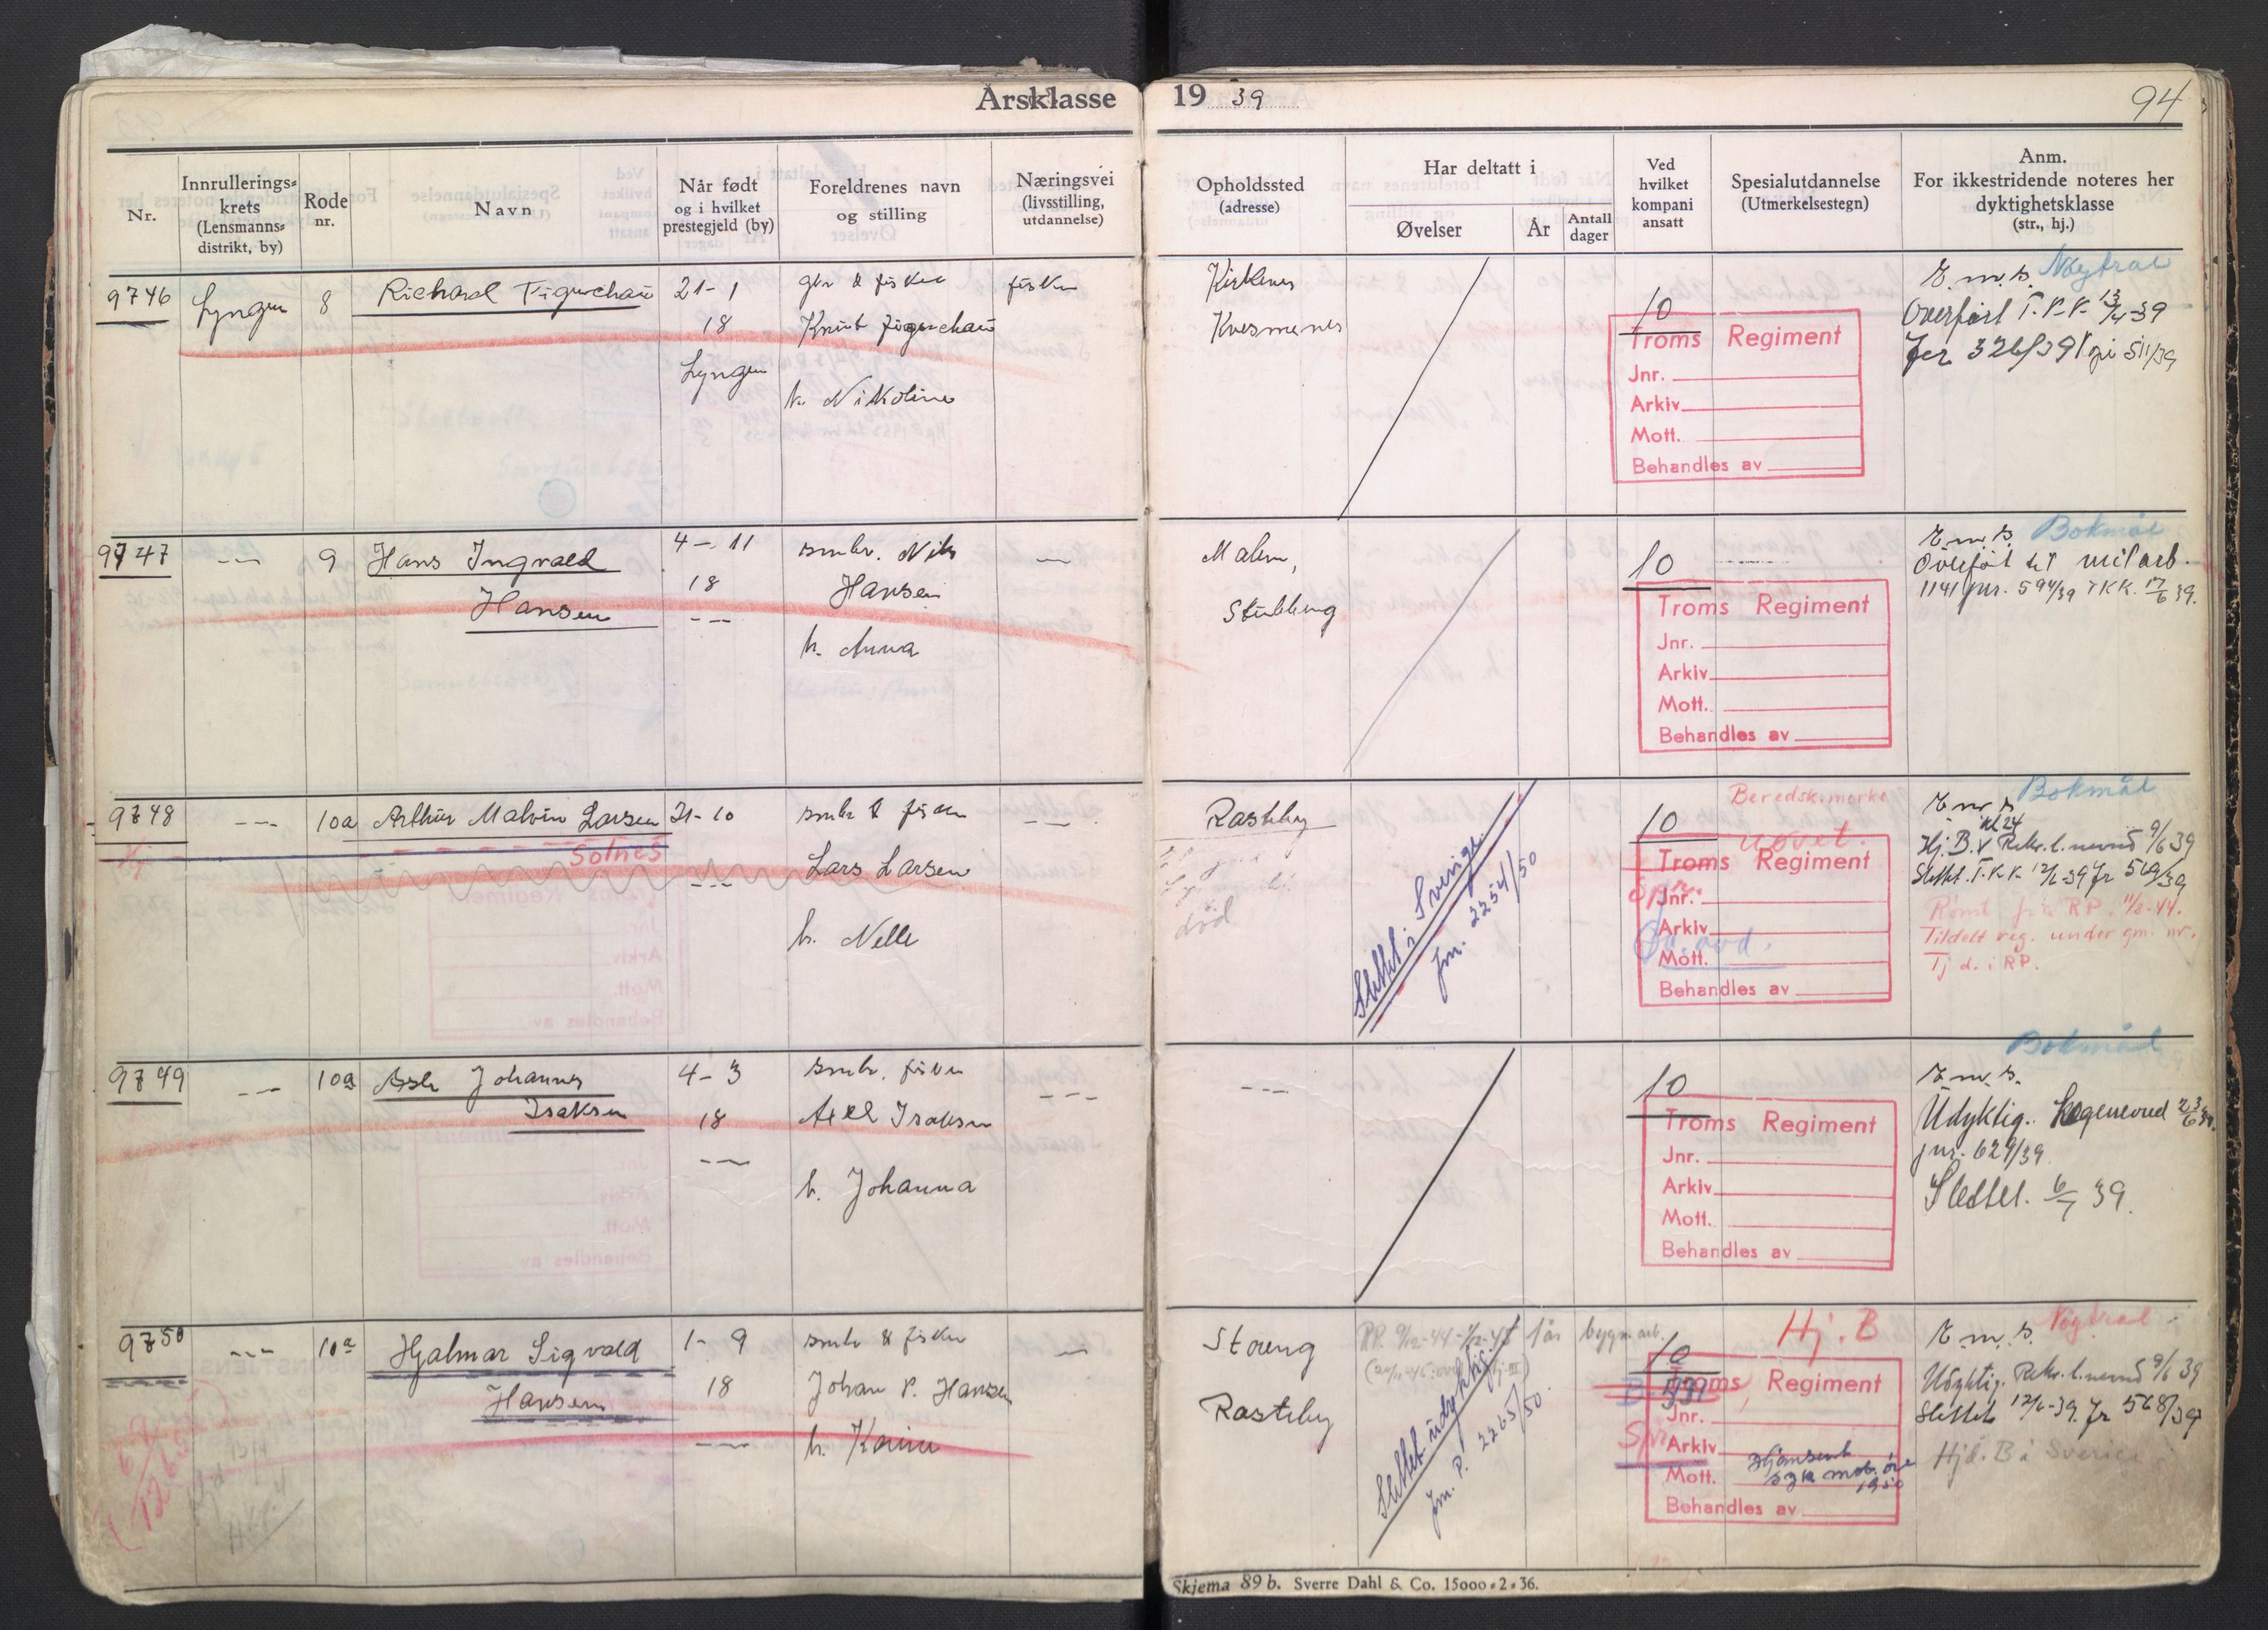 Årsklasse 1939
94
Nr.
Innrullerings-
krets
(Lensmanns-
distrikt, by)
Rode
nr.
Navn
Når født
og i hvilket
prestegjeld (by)
Foreldrenes navn
og stilling
Næringsvei
(livsstilling,
utdannelse)
Opholdssted
(adresse)
Har deltatt i
Øvelser
År
Antall
dager
Ved
hvilket
kompani
ansatt
Spesialutdannelse
(Utmerkelsestegn)
Anm.
For ikkestridende noteres her
dyktighetsklasse
(str., hj.)
9746
Lyngen
8
Richard Figenchau
21-1
18
Lyngen
gbr & fisker
Knut Figenchau
h. Nikoline
fisker
Kirkenes
Kvesmenes
10
Troms Regiment
Jnr.
Arkiv
Mott.
Behandles av
E.m.s. Nøytral
Overført T.K.K. 13/4-39
9747
---
9
Hans Ingvald
Hansen
4-11
18
---
smbr. Nils
Hansen
h. Anna
---
Malen,
Stubbeng
10
Troms Regiment
Jnr.
Arkiv
Mott.
Behandles av
E.m.s. Bokmål
Overført til mil arb.
1141 jnr. 594/39 TKK. 17/6 39.
9748
Hj
---
10a
Arthur Malvin Larsen
Solnes
21-10
---
smbr & fisker
Lars Larsen
h. Nelle
---
Rasteby
død
Slettet i Sverige
Jnr. 2254/50
10
Beredsk.merke
uøvet.
Troms Regiment
Jnr.
Arkiv
Mott.
Behandles av
E.m.s. Bokmål
Kl 24
Hj. B. v Rekr.l.nevnd 9/6 39
Slettet. T.K.K. 12/6-39 Jr 569/39
Rømt fra RP. 11/8-44.
Tildelt reg. under gm. nr.
Tj d. i RP.
9749
---
10a
Asle Johannes
Isaksen
4-3
18
---
smbr. fisker
Axel Isaksen
h. Johanna
---
---
10
Troms Regiment
Jnr.
Arkiv
Mott.
Behandles av
Bokmål
E.m.s.
Udyktig. Legenevnd 23/6 39.
jnr. 629/39
Slettet. 6/7 39.
9750
---
10a
Hjalmar Sigvald
Hansen
1-9
18
---
smbr & fisker
Johan P. Hansen
h. Karine
---
Storeng
Rasteby
Slettet udyktig.
Jnr. P. 2265/50.
10
Hj. B
Troms Regiment
Jnr.
Arkiv
Mott.
Behandles av
E.m.s. Nøytral
Udyktig. Rekr.l.nevnd 9/6 39
Slettet 12/6-39. Jr 568/39
Hjd. B i Sverige
Skjema 89 b. Sverre Dahl & Co. 15000-2-36.